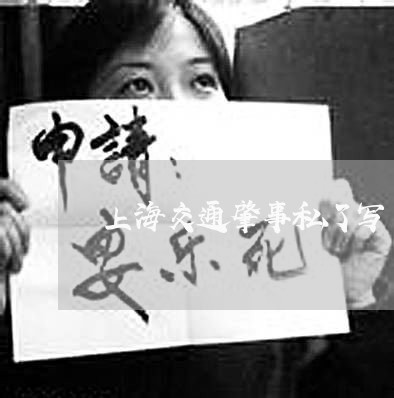 申請：
上海交通肇事私了写
安乐死